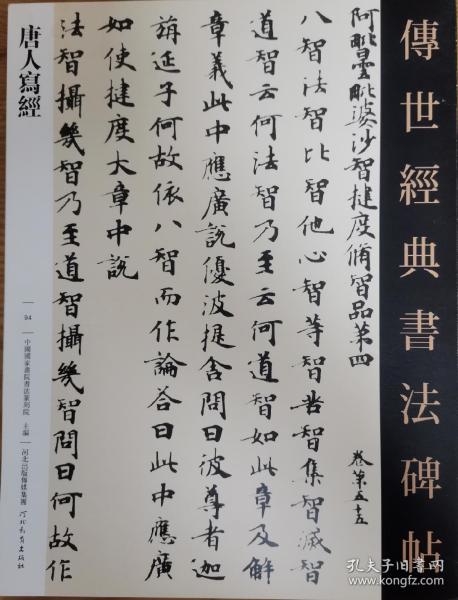 傳世經典書法碑帖
阿毗曇毗婆沙智揵度脩智品第四 卷第五十五
八智法智比智他心智等智苦智集智滅智
道智云何法智乃至云何道智如此章及解
章義此中應廣說優波提舍問曰彼尊者迦
旃延子何故依八智而作論答曰此中應廣
如使揵度大章中說
法智攝幾智乃至道智攝幾智問曰何故作
唐人寫經
94
中國國家畫院書法篆刻院 主編
河北出版傳媒集團 河北教育出版社
孔夫子旧书网
www.kongfz.com